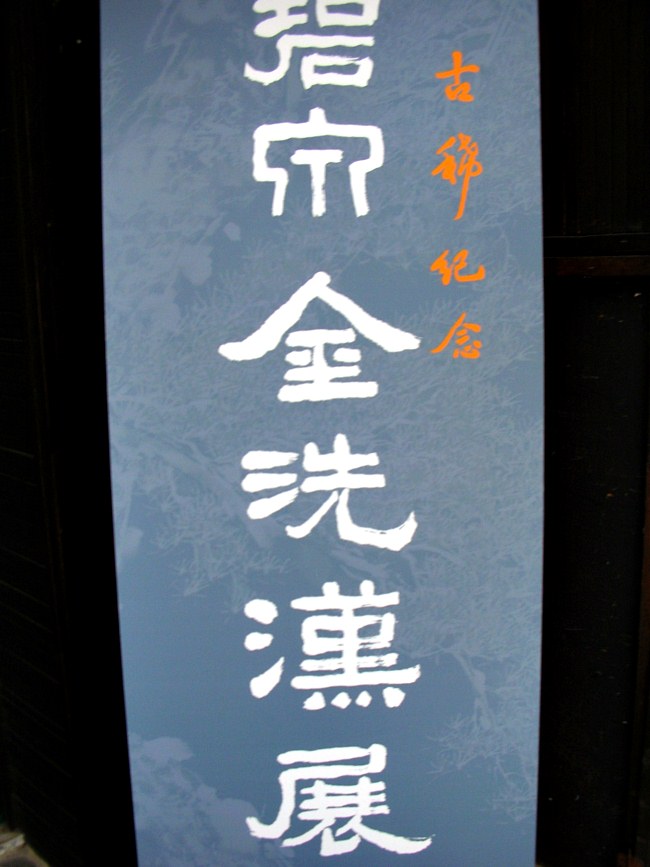 古稀紀念
碧宗 金洗漢展